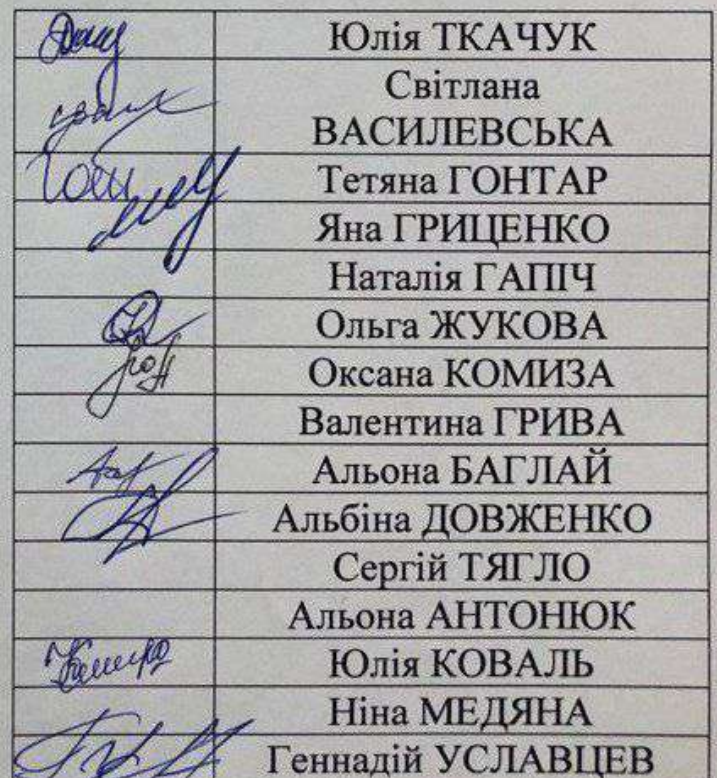 Юлія ТКАЧУК
Світлана
ВАСИЛЕВСЬКА
Тетяна ГОНТАР
Яна ГРИЦЕНКО
Наталія ГАПІЧ
Ольга ЖУКОВА
Оксана КОМИЗА
Валентина ГРИВА
Альона БАГЛАЙ
Альбіна ДОВЖЕНКО
Сергій ТЯГЛО
Альона АНТОНЮК
Юлія КОВАЛЬ
Ніна МЕДЯНА
Геннадій УСЛАВЦЕВ